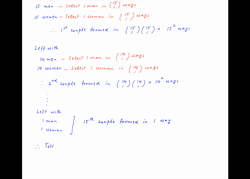 15 men – Select 1 man in (15 1) ways
15 women – Select 1 woman in (15 1) ways
∴ 1st couple formed in (15 1)(15 1) = 15² ways
Left with
14 men – Select 1 man in (14 1) ways
14 women – Select 1 woman in (14 1) ways
∴ 2nd couple formed in (14 1)(14 1) = 14² ways
⋮
Left with
1 man
1 woman
} 15th couple formed in 1 way
∴ Tot